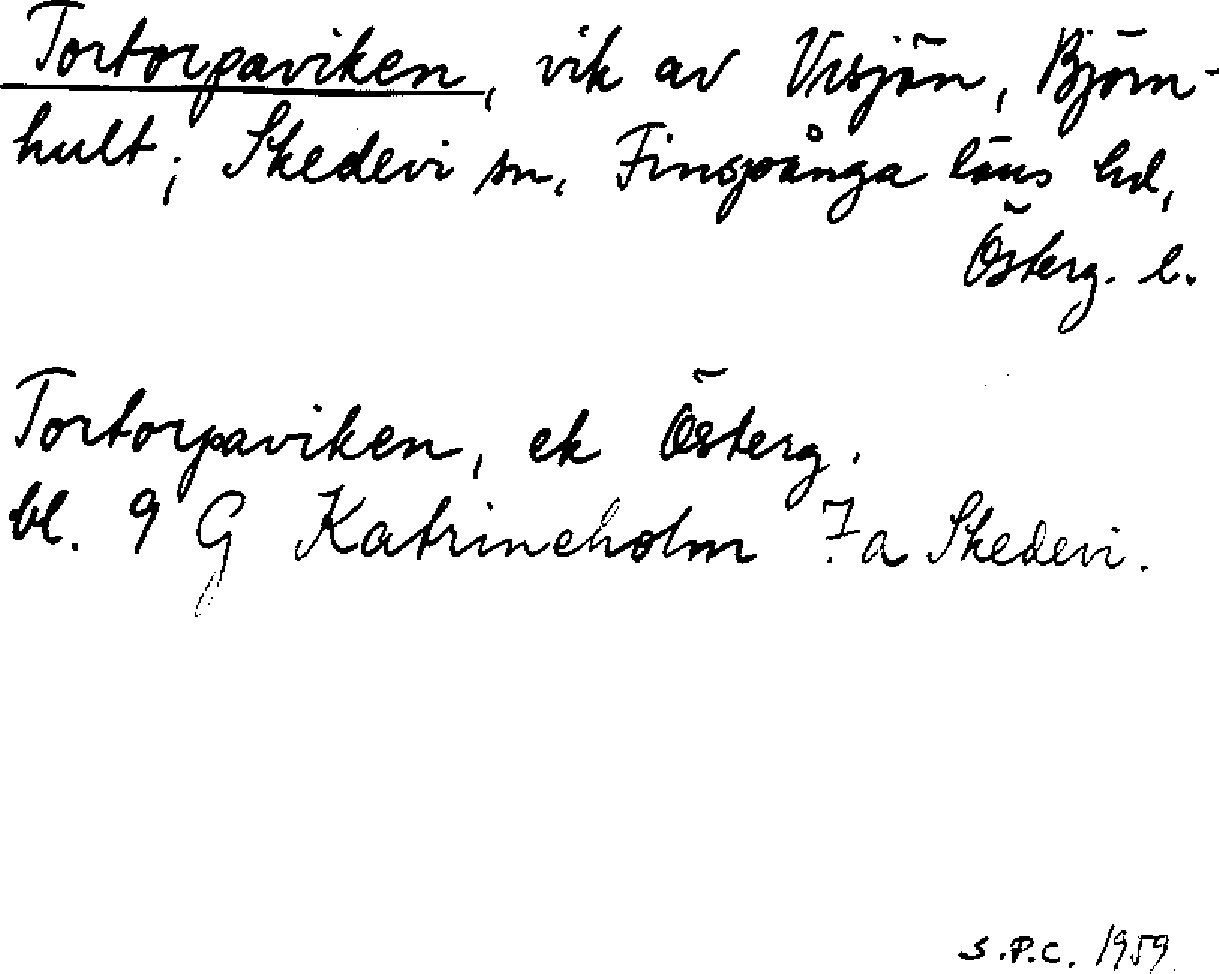 Tortorpaviken, vik av Visjön, Björn-
hult, Skedevi sn, Finspånga läns hd,
Österg. l.
Tortorpaviken, ek Österg.
bl. 9 G Katrineholm 7a Skedevi.
S.P.C. 1959